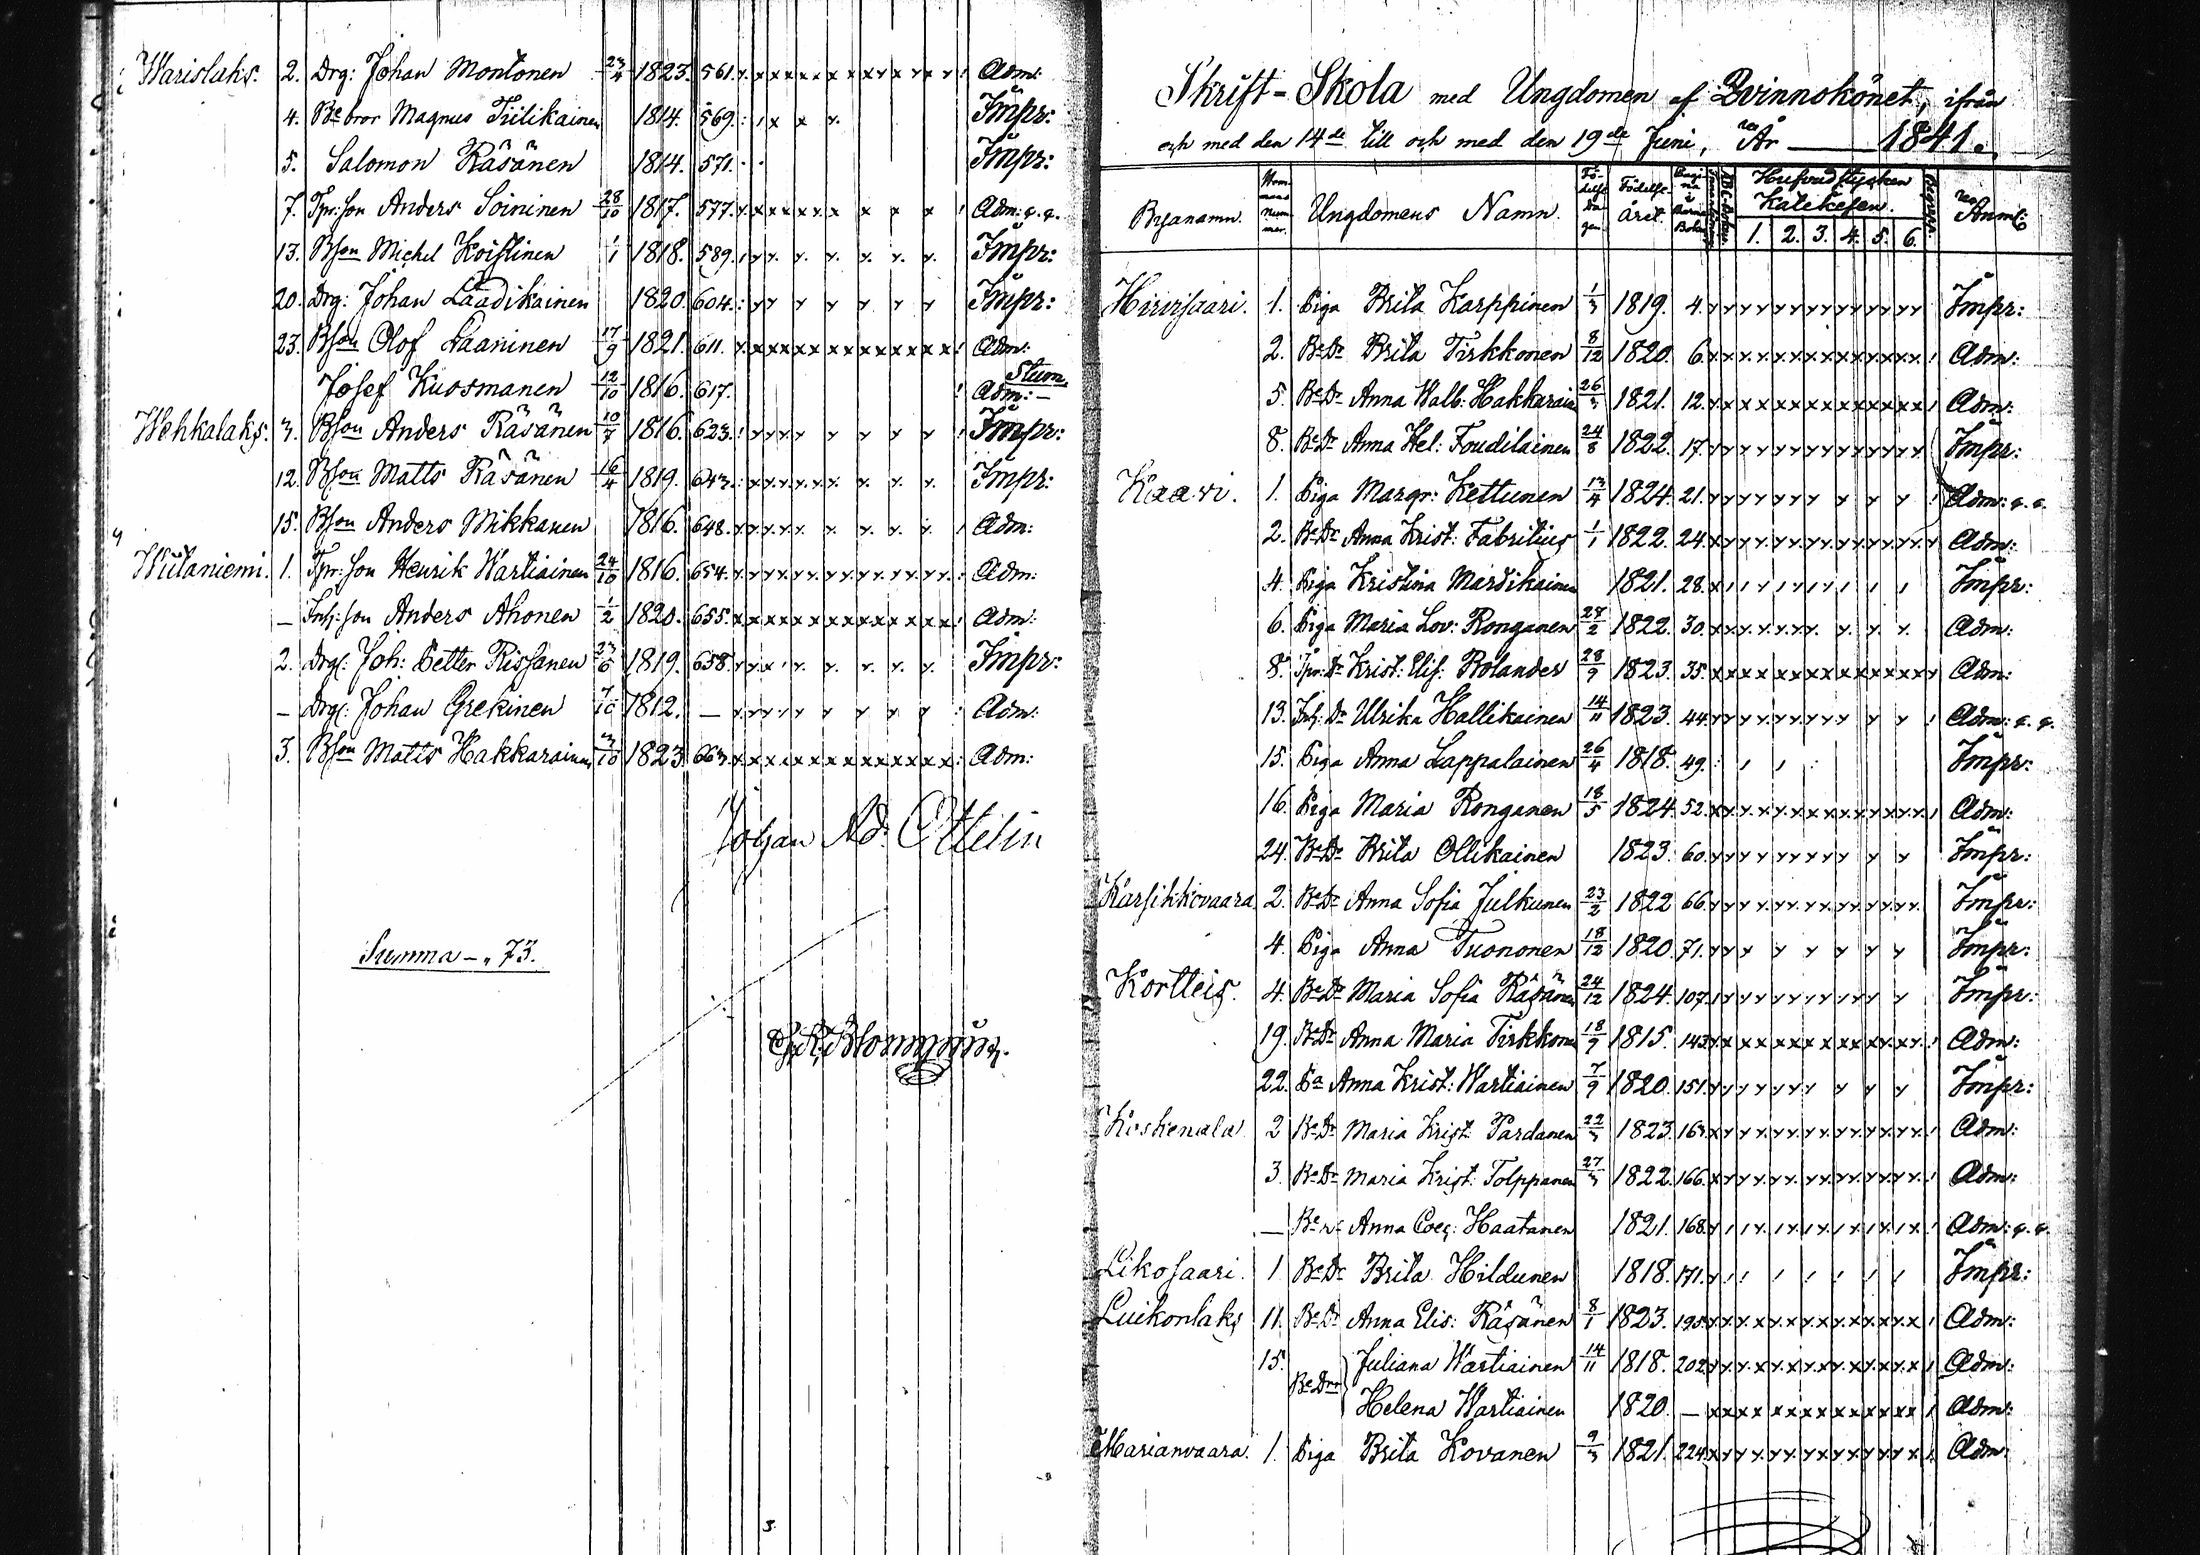 Warislaks. 2. Drg: Johan Montonen 23/4 1823. 561. Adm:
4. Be bror Magnus Tiilikainen 1814. 569. Impr:
5. Salomon Räsänen 1814. 571. Impr:
7. Tpr: son Anders Soininen 28/10 1817. 577. Adm: q. q.
13. Bson Michel Koistinen 1/1 1818. 589. Impr:
20. Drg: Johan Laadikainen 1820. 604. Impr:
23. Bson Olof Laaninen 17/9 1821. 611. Adm:
Josef Kuosmanen 12/10 1816. 617. Stum. Adm: –
Wehkalaks. 3. Bson Anders Räsänen 1816. 623. Impr:
12. Bson Matts Räsänen 16/4 1819. 643. Impr:
15. Bson Anders Mikkanen 1816. 648. Adm:
Wiitaniemi. 1. Tpr: son Henrik Wartiainen 24/10 1816. 654. Adm:
– Inh: son Anders Ahonen 1/2 1820. 655. Adm:
2. Drg: Joh: Petter Rissanen 23/6 1819. 658. Impr:
– Drg: Johan Grekinen 7/10 1812. – Adm:
3. Bson Matts Hakkarainen 3/10 1823. 663. Adm:
Johan Ad: Ottelin
Summa – „ 73.
Skrift-Skola med Ungdomen af Qvinnokönet, ifrån
och med den 14de till och med den 19de Juni, År — 1841.
Byanamn. Hemmans nummer. Ungdomens Namn. Födelse dagen. Födelse året. Pagina i Barna Boken. Hufvudstycken Katekesen. 1. 2. 3. 4. 5. 6. Anm:
Hirvisaari. 1. Piga Brita Karppinen 1/3 1819. 4. Impr:
2. Be Dr Brita Tirkkonen 8/12 1820. 6. Adm:
5. Be Dr Anna Walb: Hakkarain 26/3 1821. 12. Adm:
8. Be Dr Anna Hel: Foudilainen 24/8 1822. 17. Impr:
Kaavi. 1. Piga Margr: Kettunen 13/4 1824. 21. Adm: q. q.
2. Be Dr Anna Krist: Fabritius 1/1 1822. 24. Adm:
4. Piga Kristina Mardikainen 1821. 28. Impr:
6. Piga Maria Lov: Ronganen 28/2 1822. 30. Adm:
8. Tpr: Dr Krist: Elis: Rolander 28/9 1823. 35. Adm:
13. Inh: Dr Ulrika Hallikainen 14/11 1823. 44. Adm: q. q.
15. Piga Anna Lappalainen 26/4 1818. 49. Impr:
16. Piga Maria Ronganen 18/5 1824. 52. Adm:
24. Be Dr Brita Ollikainen 1823. 60. Impr:
Karsikkovaara 2. Be Dr Anna Sofia Julkunen 23/2 1822 66. Impr:
4. Piga Anna Tuononen 18/12 1820. 71. Impr:
Kortteis. 4. Be Dr Maria Sofia Räsänen 24/12 1824. 107. Impr:
19. Be Dr Anna Maria Tirkkonen 18/9 1815. 143. Adm:
22. Pa Anna Krist: Wartiainen 7/9 1820. 151. Impr:
Koskenala 2 Be Dr Maria Krist: Pardanen 22/3 1823. 163. Adm:
3. Be Dr Maria Krist: Tolppanen 27/3 1822. 166. Adm:
– Anna Coec: Haatanen 1821. 168. Adm: q. q.
Likosaari. 1 Be Dr Brita Hildunen 1818. 171. Impr:
Luikonlaks 11. Be Dr Anna Elis: Räsänen 8/1 1823. 195. Adm:
15. Be Drr Juliana Wartiainen 14/11 1818. 202. Adm:
Helena Wartiainen 1820. – Adm:
Marianvaara. 1. Piga Brita Kovanen 9/3 1821. 224. Adm: